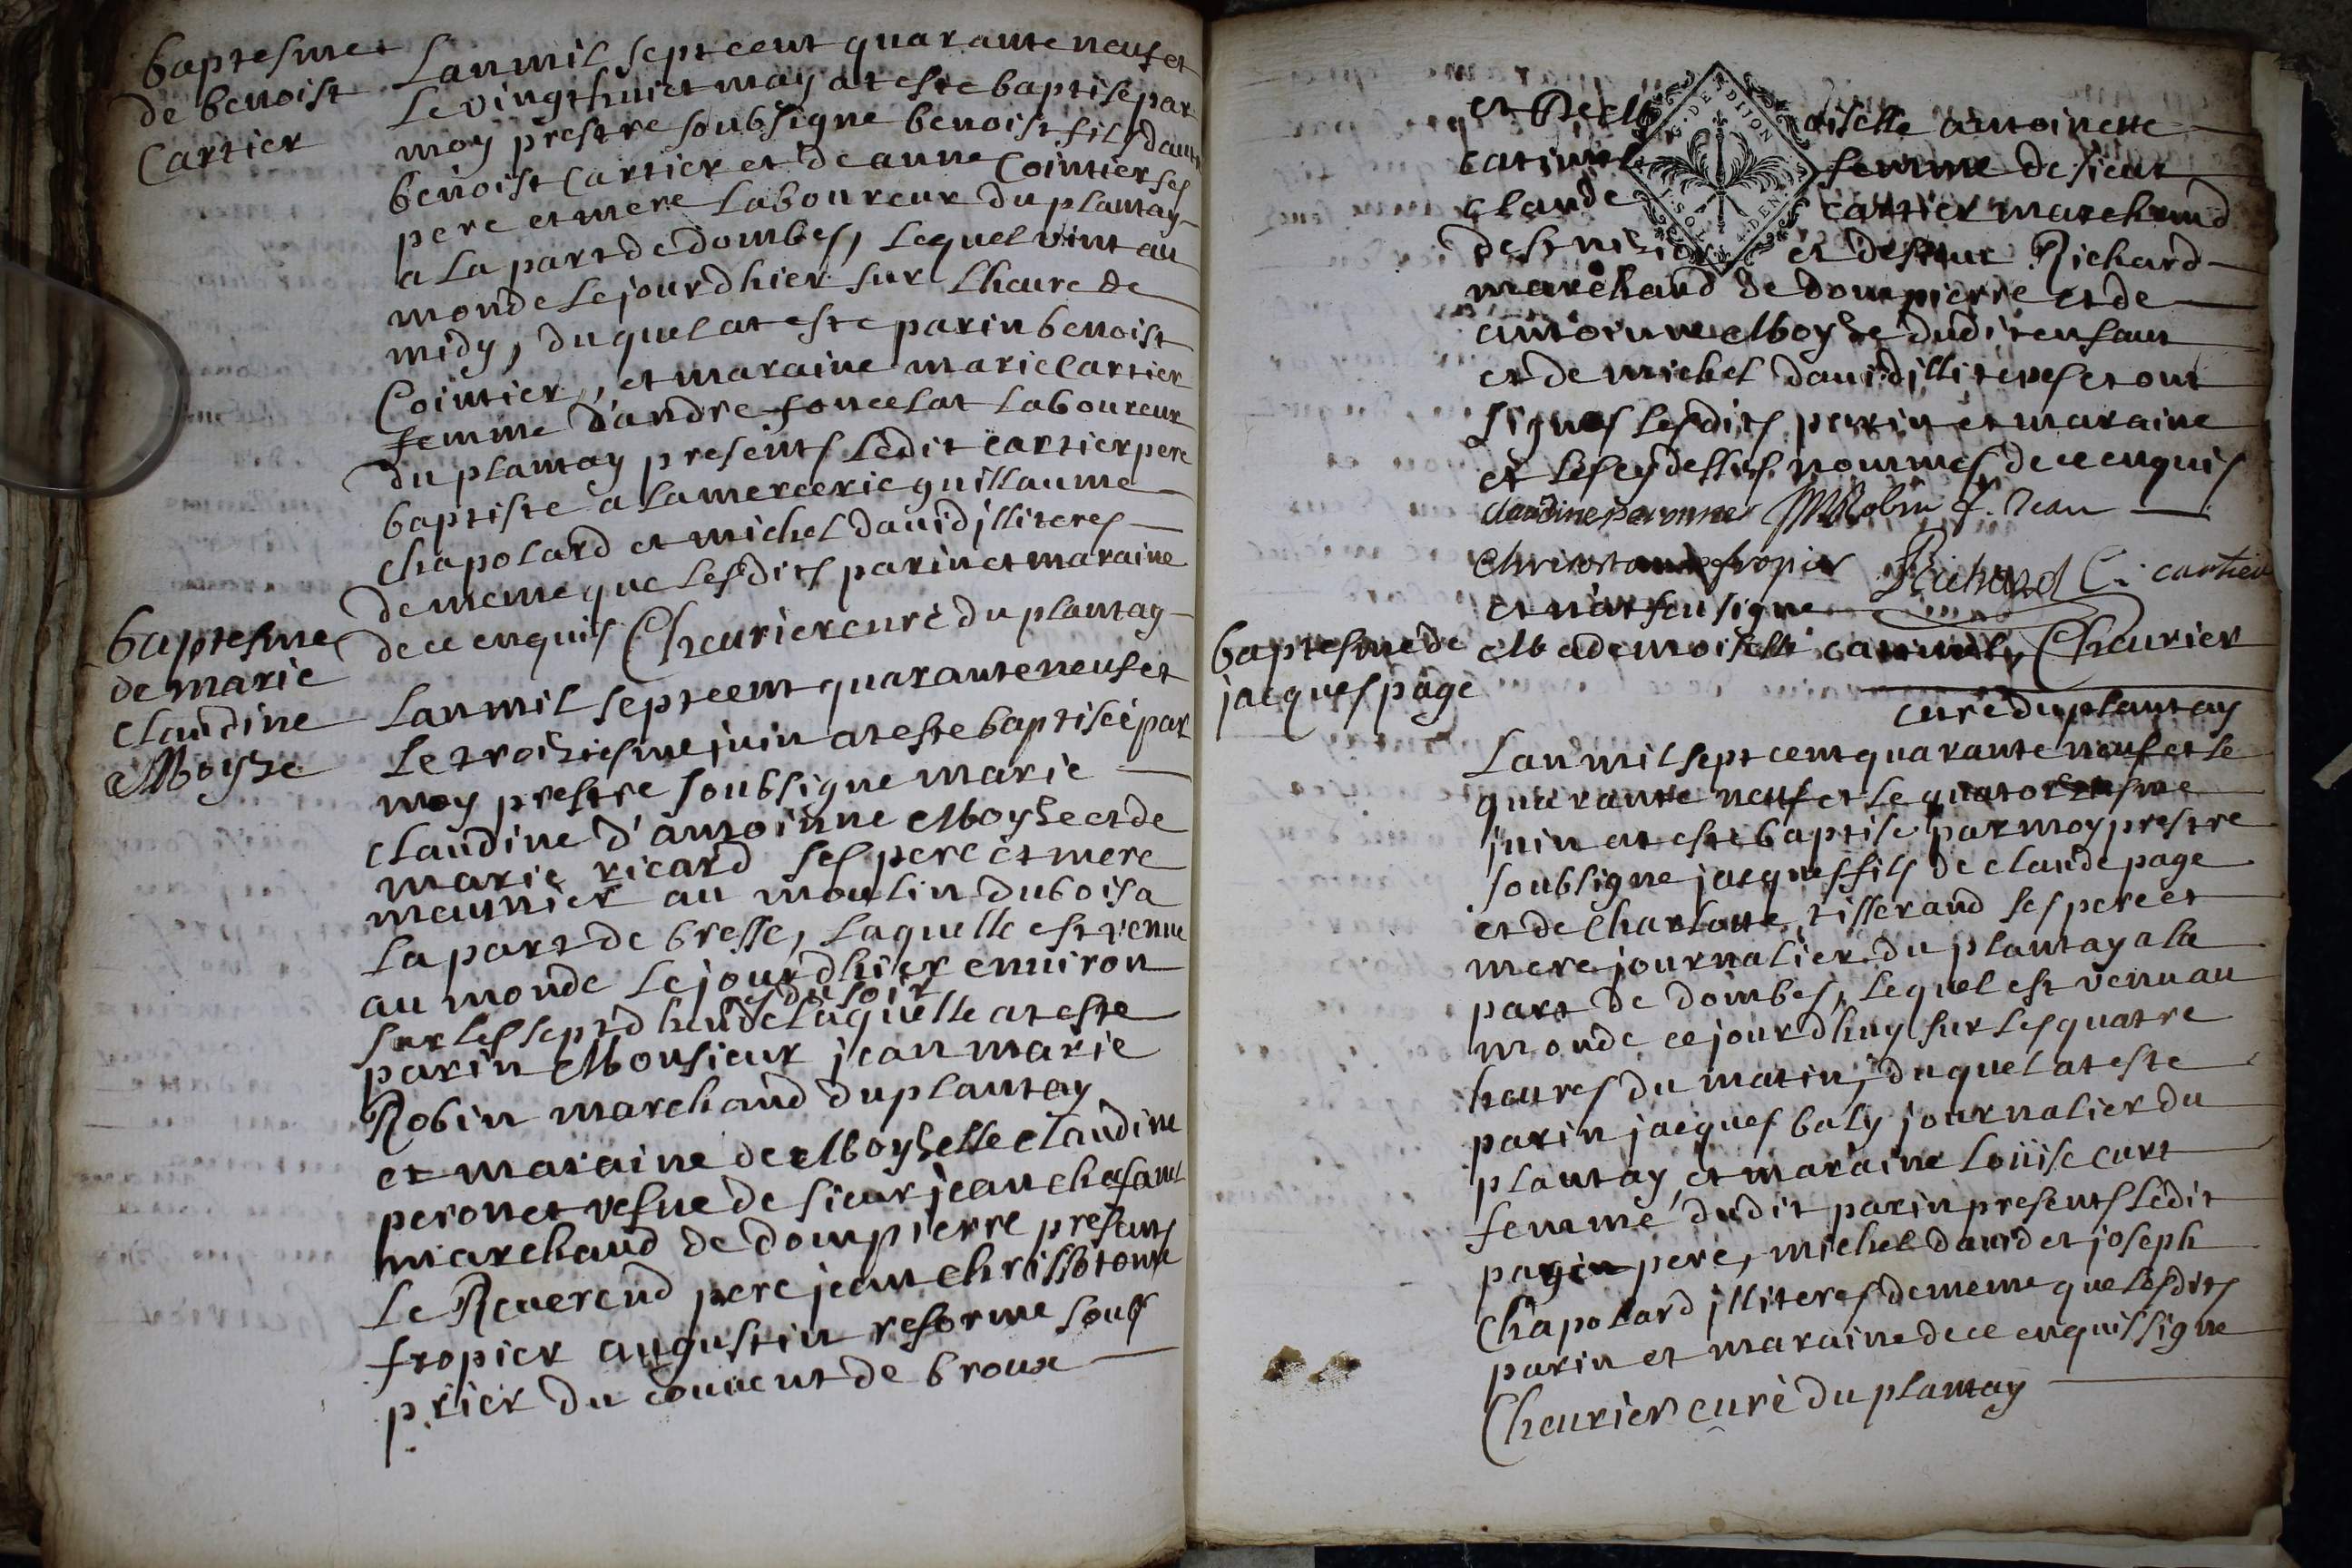 baptesme
de benoist
Cartier
Lanmil sept cent quarante neuf et
le vingt huict may at este baptisé par
moy prestre soubsigne benoist fils d'aut
benoist Cartier et de anne Cointier ses
pere et mere Laboureur du plantay
a la part de dombes, lequel vint au
monde le jourdhier sur lheure de
midy, duquel at este parin benoist
Cointier, et maraine marie Cartier
femme d'andre foncelat Laboureur
du plantay presents ledit cartier pere
baptiste a la mercerie guillaume
chapolard et michel david jlliteres
de meme que lesdits parin et maraine
de ce enquis Cheurier curé du plantay
baptesme
de marie
claudine
Moyze
Lanmil sept cent quarante neuf et
le troiziesme juin at este baptiseé par
moy prestre soubsigne marie
claudine d'antoinne Moyze et de
marie ricard ses pere et mere
meunier au moulin du bois a
la part de bresse, laquelle est venue
au monde le jourdhier enuiron
sur les sept d heures du soir de laquelle at este
parin Monsieur jean marie
Robin marchand du plantay
et maraine de Moyzelle claudine
peronet vefue de sieur jean chasanel
marchand de dompierre presents
le Reuerend pere jean chrissotome
fropier augustin reforme soub
prier du couuent de broux
et de aiselle antoinette
catimel femme de sieur
claude cartier marchand
de st nizier et de Richard
marchand de dompierre et de
antoinne Moyze dudit enfant
et de michel david jlliteres et ont
signes lesdits parin et maraine
et les cydessus nommes de ce enquis
claudine peronnet JM Robin f. Jean
Chrisostome fropier Richard C. cartier
et n'at sceu signe
Mademoiselle catimel, Cheurier
curé du plantay
baptesme de
jacques page
Lanmil sept cent quarante neuf et le
quarante neuf et le quatorziesme
juin at este baptise par moy prestre
soubsigne jacques fils de claude page
et de charlotte tisserand ses pere et
mere journalier du plantay a la
part de dombes, lequel est venu au
monde ce jourdhuy sur les quatre
heures du matin, duquel at este
parin jacques baly journalier du
plantay, et maraine Loüise curt
femme dudit parin presents ledit
pere, michel david et joseph
Chapolard jlliteres de meme que lesdits
parin et maraine de ce enquis signe
Cheurier curé du plantay
G. DE DIJON
SOL 4. DEN